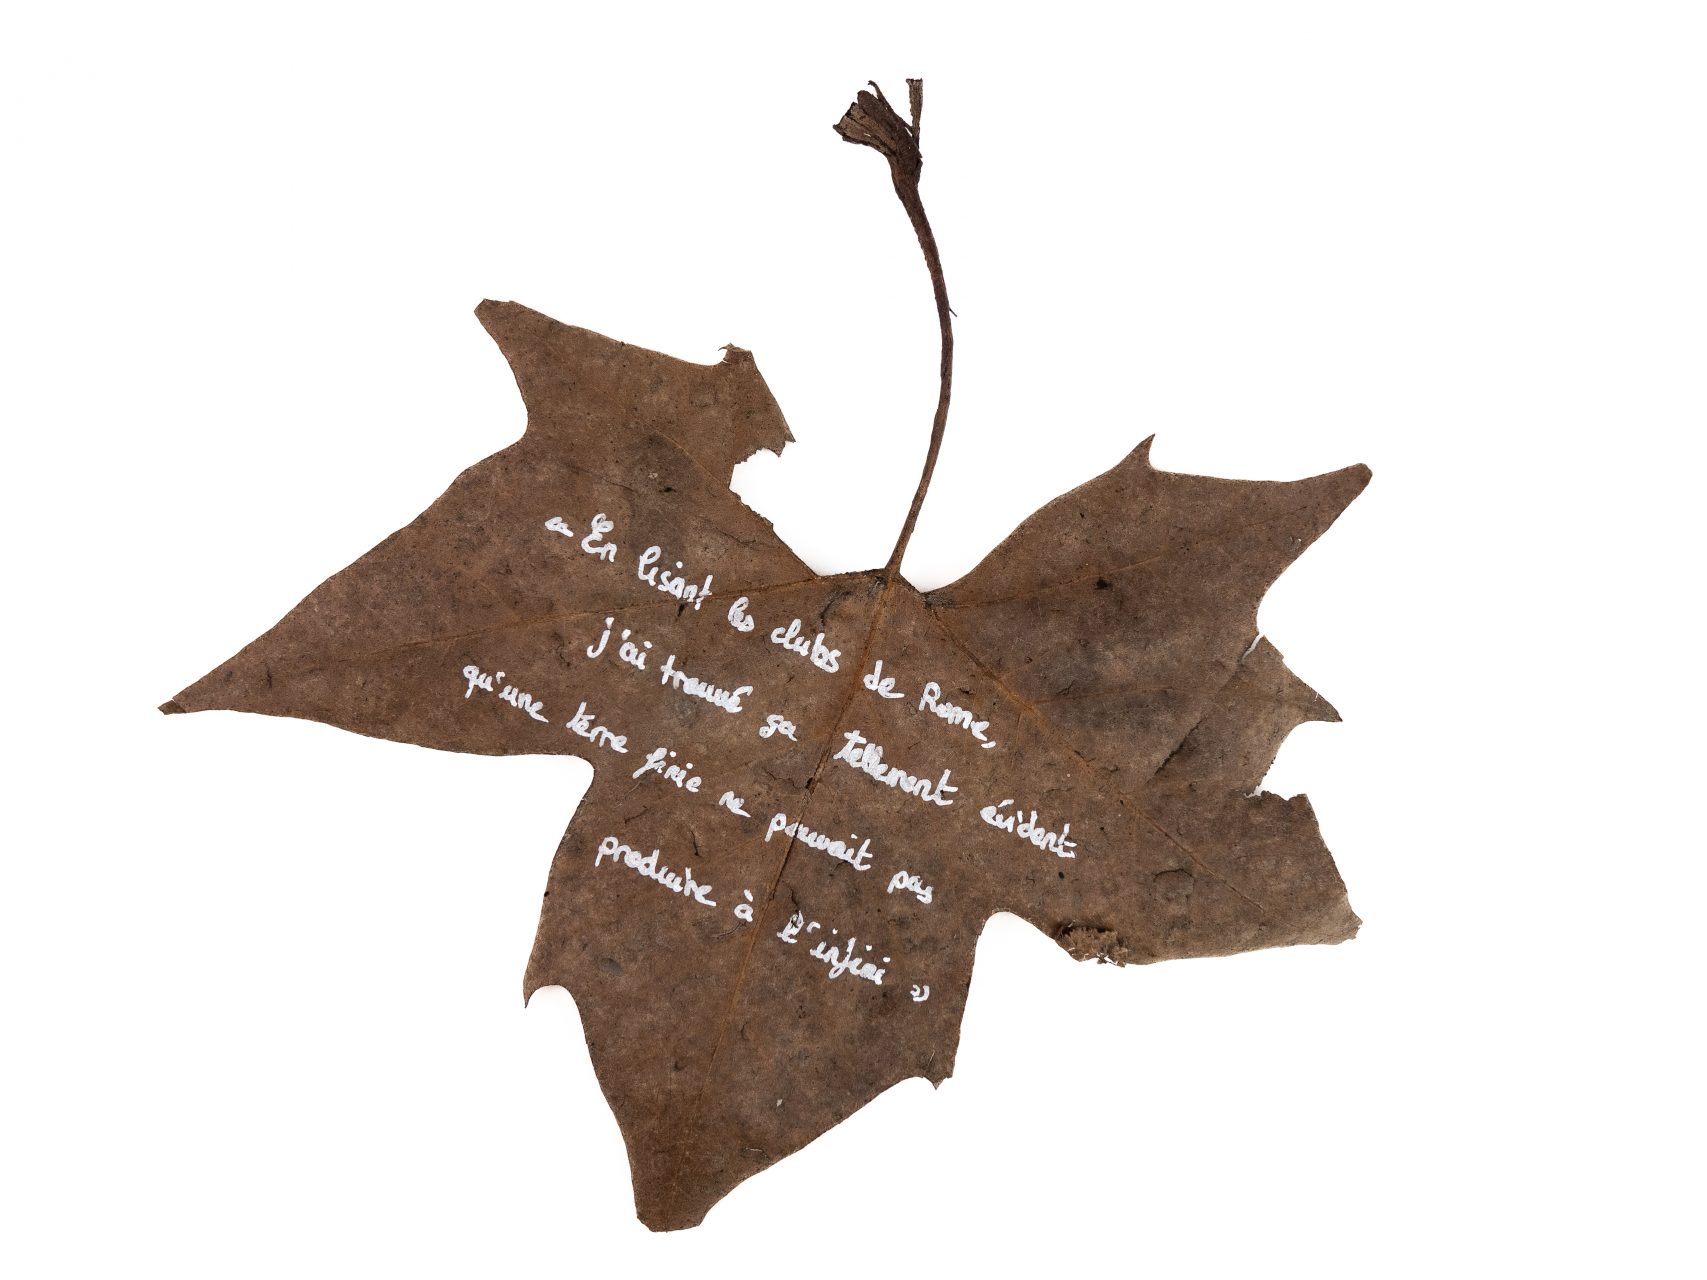 « En lisant les clubs de Rome,
j'ai trouvé ça tellement évident
qu'une terre finie ne pouvait pas
produire à l'infini »